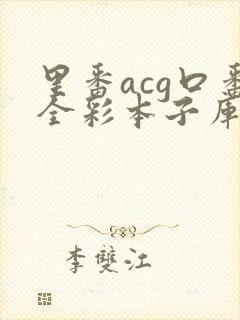 里番acg口番
全彩本子库
李雙江